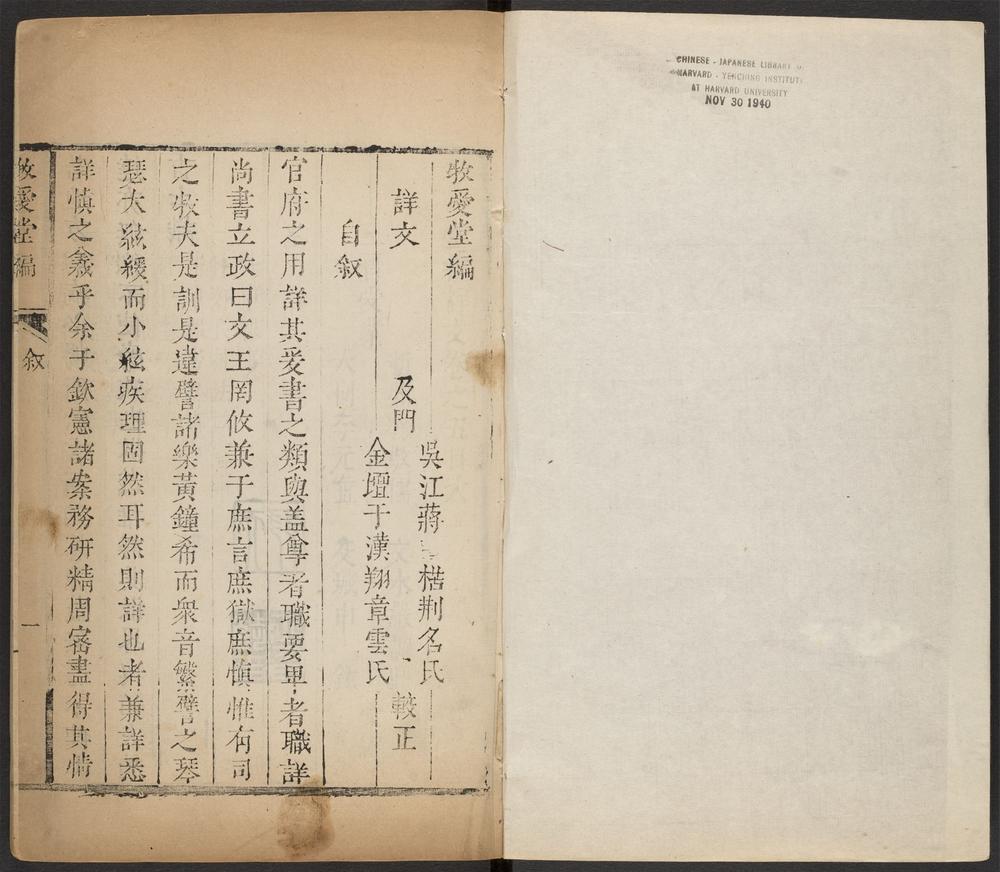 CHINESE - JAPANESE LIBRARY
HARVARD - YENCHING INSTITUTE
AT HARVARD UNIVERSITY
NOV 30 1940
牧愛堂編
詳文
及門
吳江蔣 楷荆名氏
金壇于漢翔章雲氏
較正
自叙
官府之用詳其爰書之類與盖尊者職要卑者職詳
尚書立政曰文王罔攸兼于庶言庶獄庶慎惟有司
之牧夫是訓是違譬諸樂黃鐘希而衆音繁譬之琴
瑟大絃緩而小絃疾理固然耳然則詳也者兼詳悉
詳慎之義乎余于欽憲諸案務研精周審盡得其情
牧愛堂編
叙
一